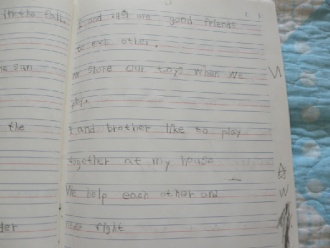 in the fall
and
good friends
to each other.
we share our toys when we
play.
the
I and brother like to play
together at my house
We help each other and
are right